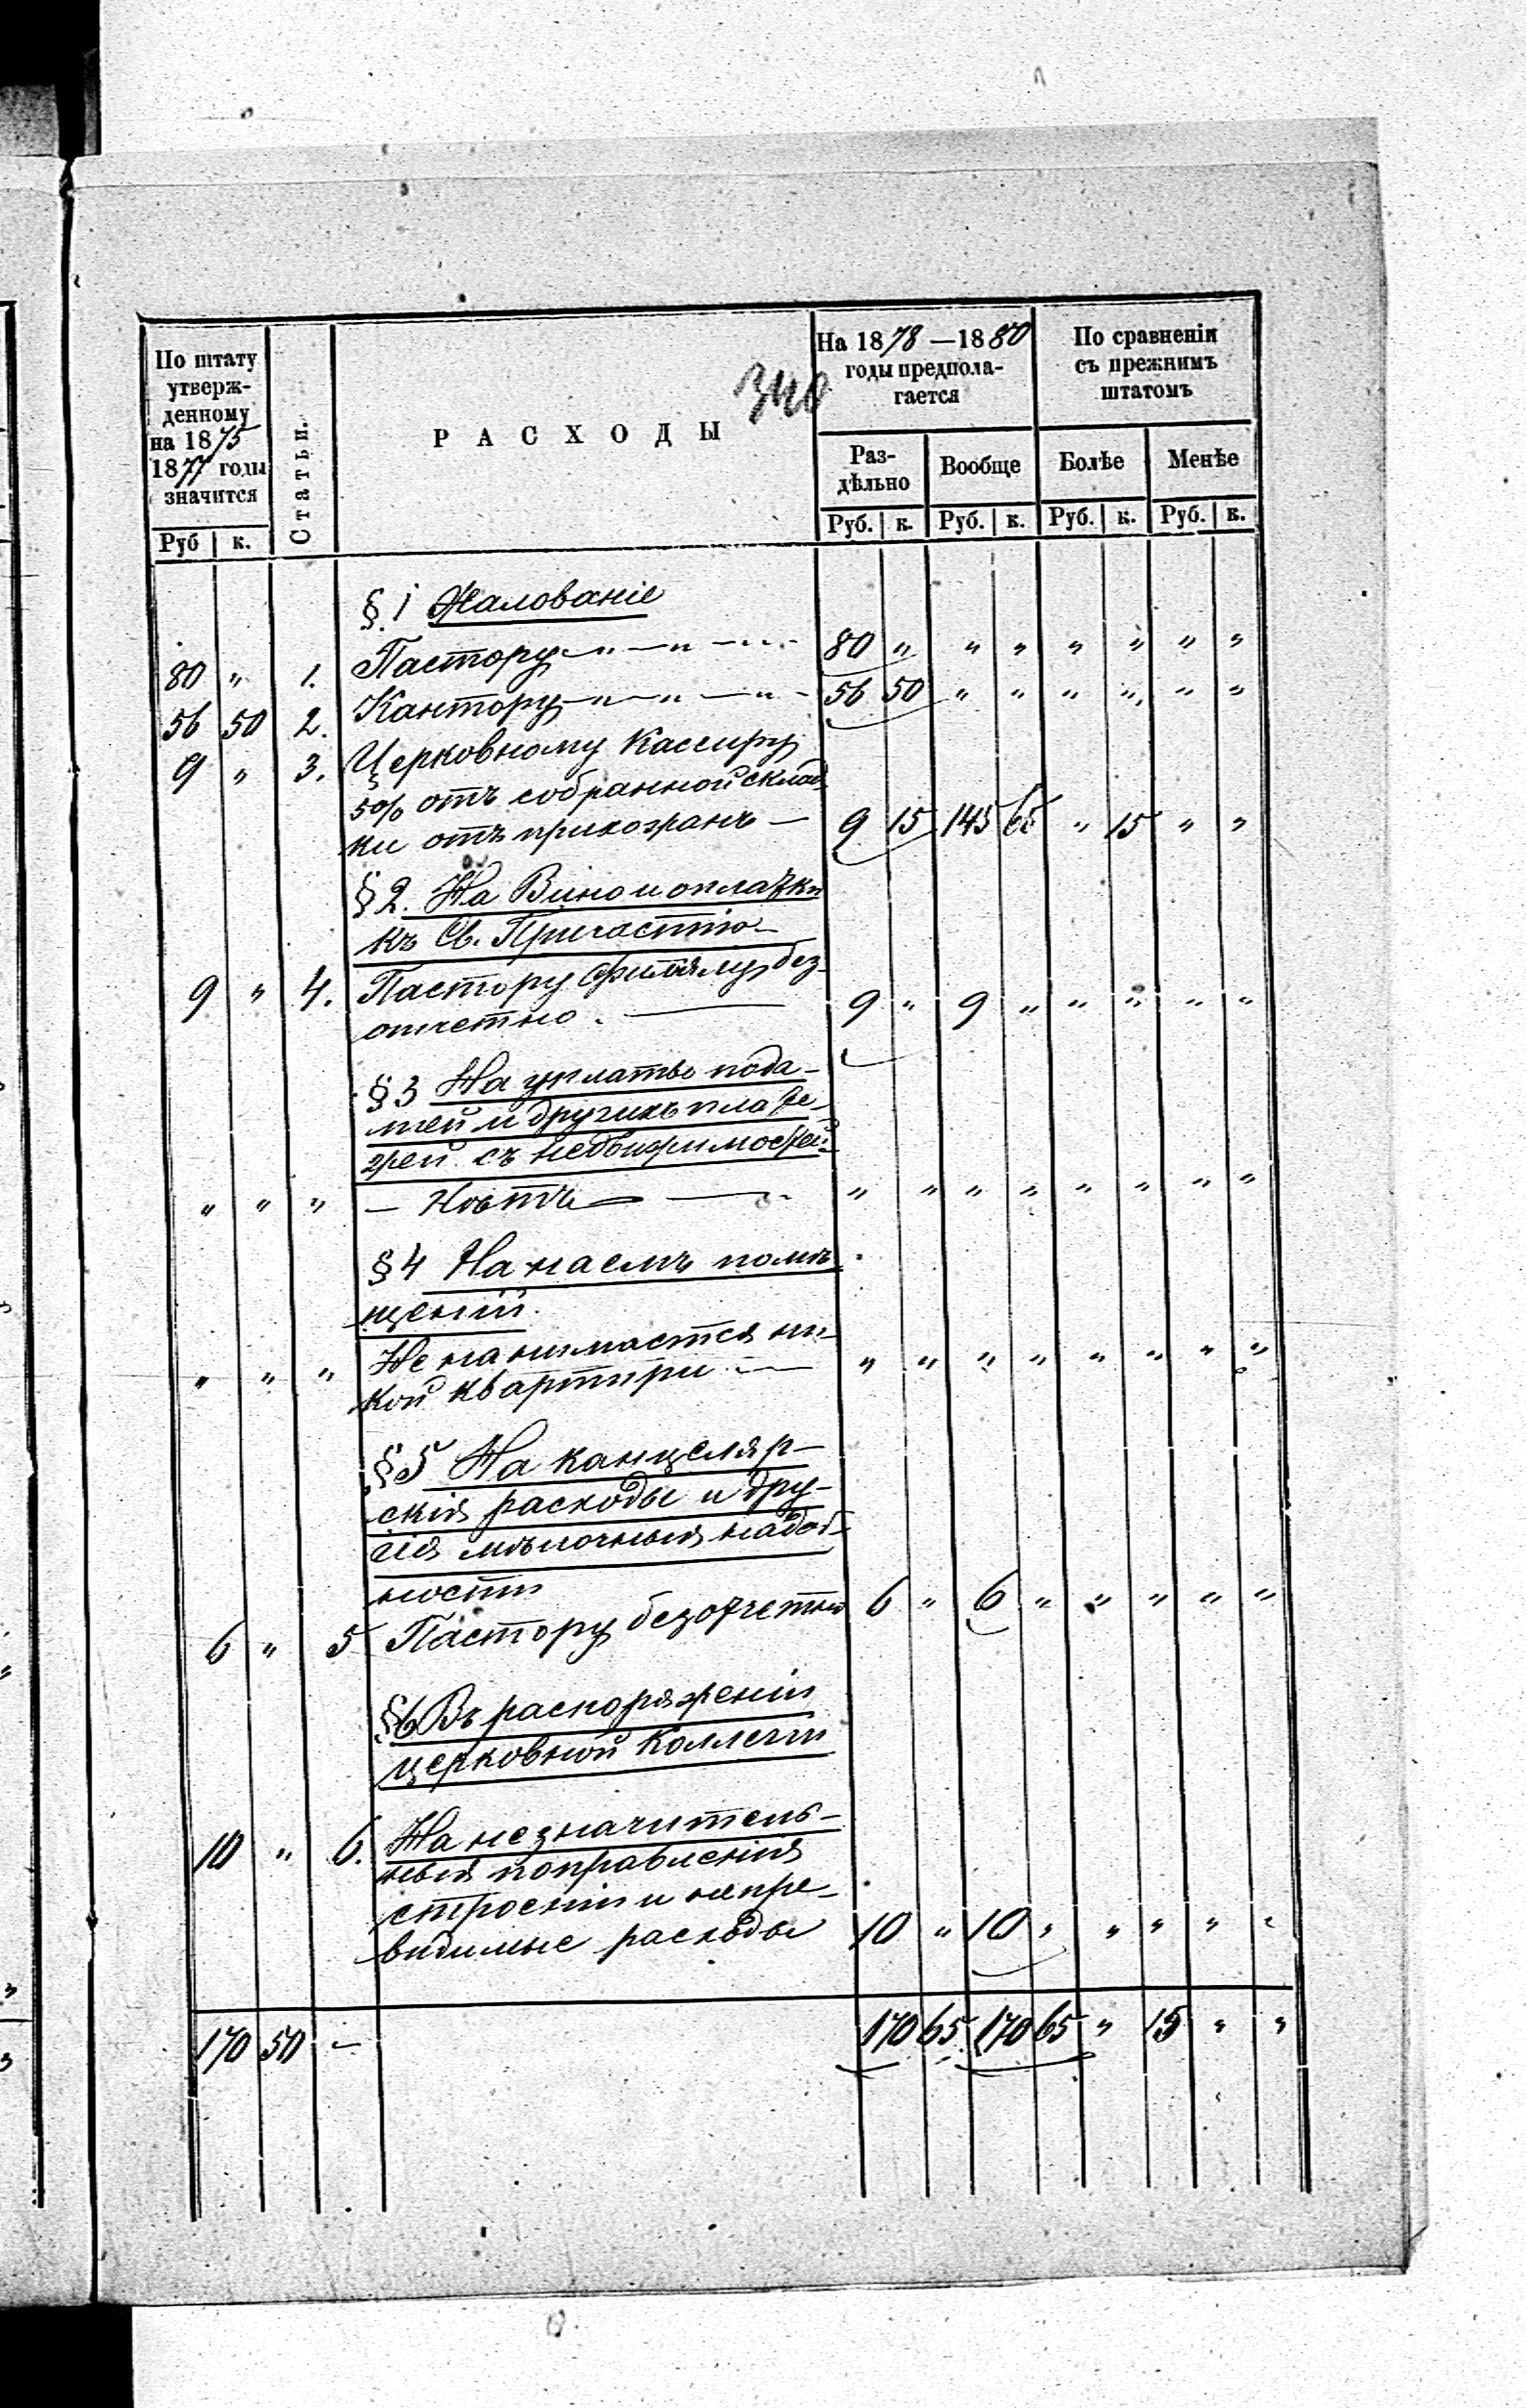 340
По штату утверж-денному на 1875 1877 годы значится
Статьи.
РАСХОДЫ
На 1878 —1880 годы предпола-гается
По сравненіи съ прежнимъ штатомъ
Раз-дѣльно Вообще Болѣе Менѣе
Руб к. Руб. к. Руб. к. Руб. к. Руб. к.
§ 1 Жалованіе
80 " 1. Пастору — " — " — " — 80 " " " " " " "
56 50 2. Кантору — " — " — " — 56 50 " " " " " "
9 " 3. Церковному Кассиру
5% отъ собранной склад
ки отъ прихожанъ — 9 15 145 65 " 15 " "
§ 2. На Вино и оплатки
къ Св. Причастію
9 " 4. Пастору без-
отчетно. — 9 " 9 " " " " "
§ 3 На уплатье пода-
тей и другихъ плате-
жей съ недвижимостей
" " " — Нѣтъ — " " " " " " " "
§ 4 На наемъ помѣ
щеній.
" " " Не нанимается ни-
кой квартири — " " " " " " " "
§ 5 На канцеляр-
скія расходы и дру-
гія мѣлочныя надоб-
ности
6 " 5 Пастору безотчетно 6 " 6 " " " " "
§ 6 Въ распоряженіи
церковной Коллегіи
10 " 6. На незначитель-
ныя поправленія
строеніи и непре-
видимые расходы 10 " 10 " " " " "
170 50 — 170 65 170 65 " 15 " "